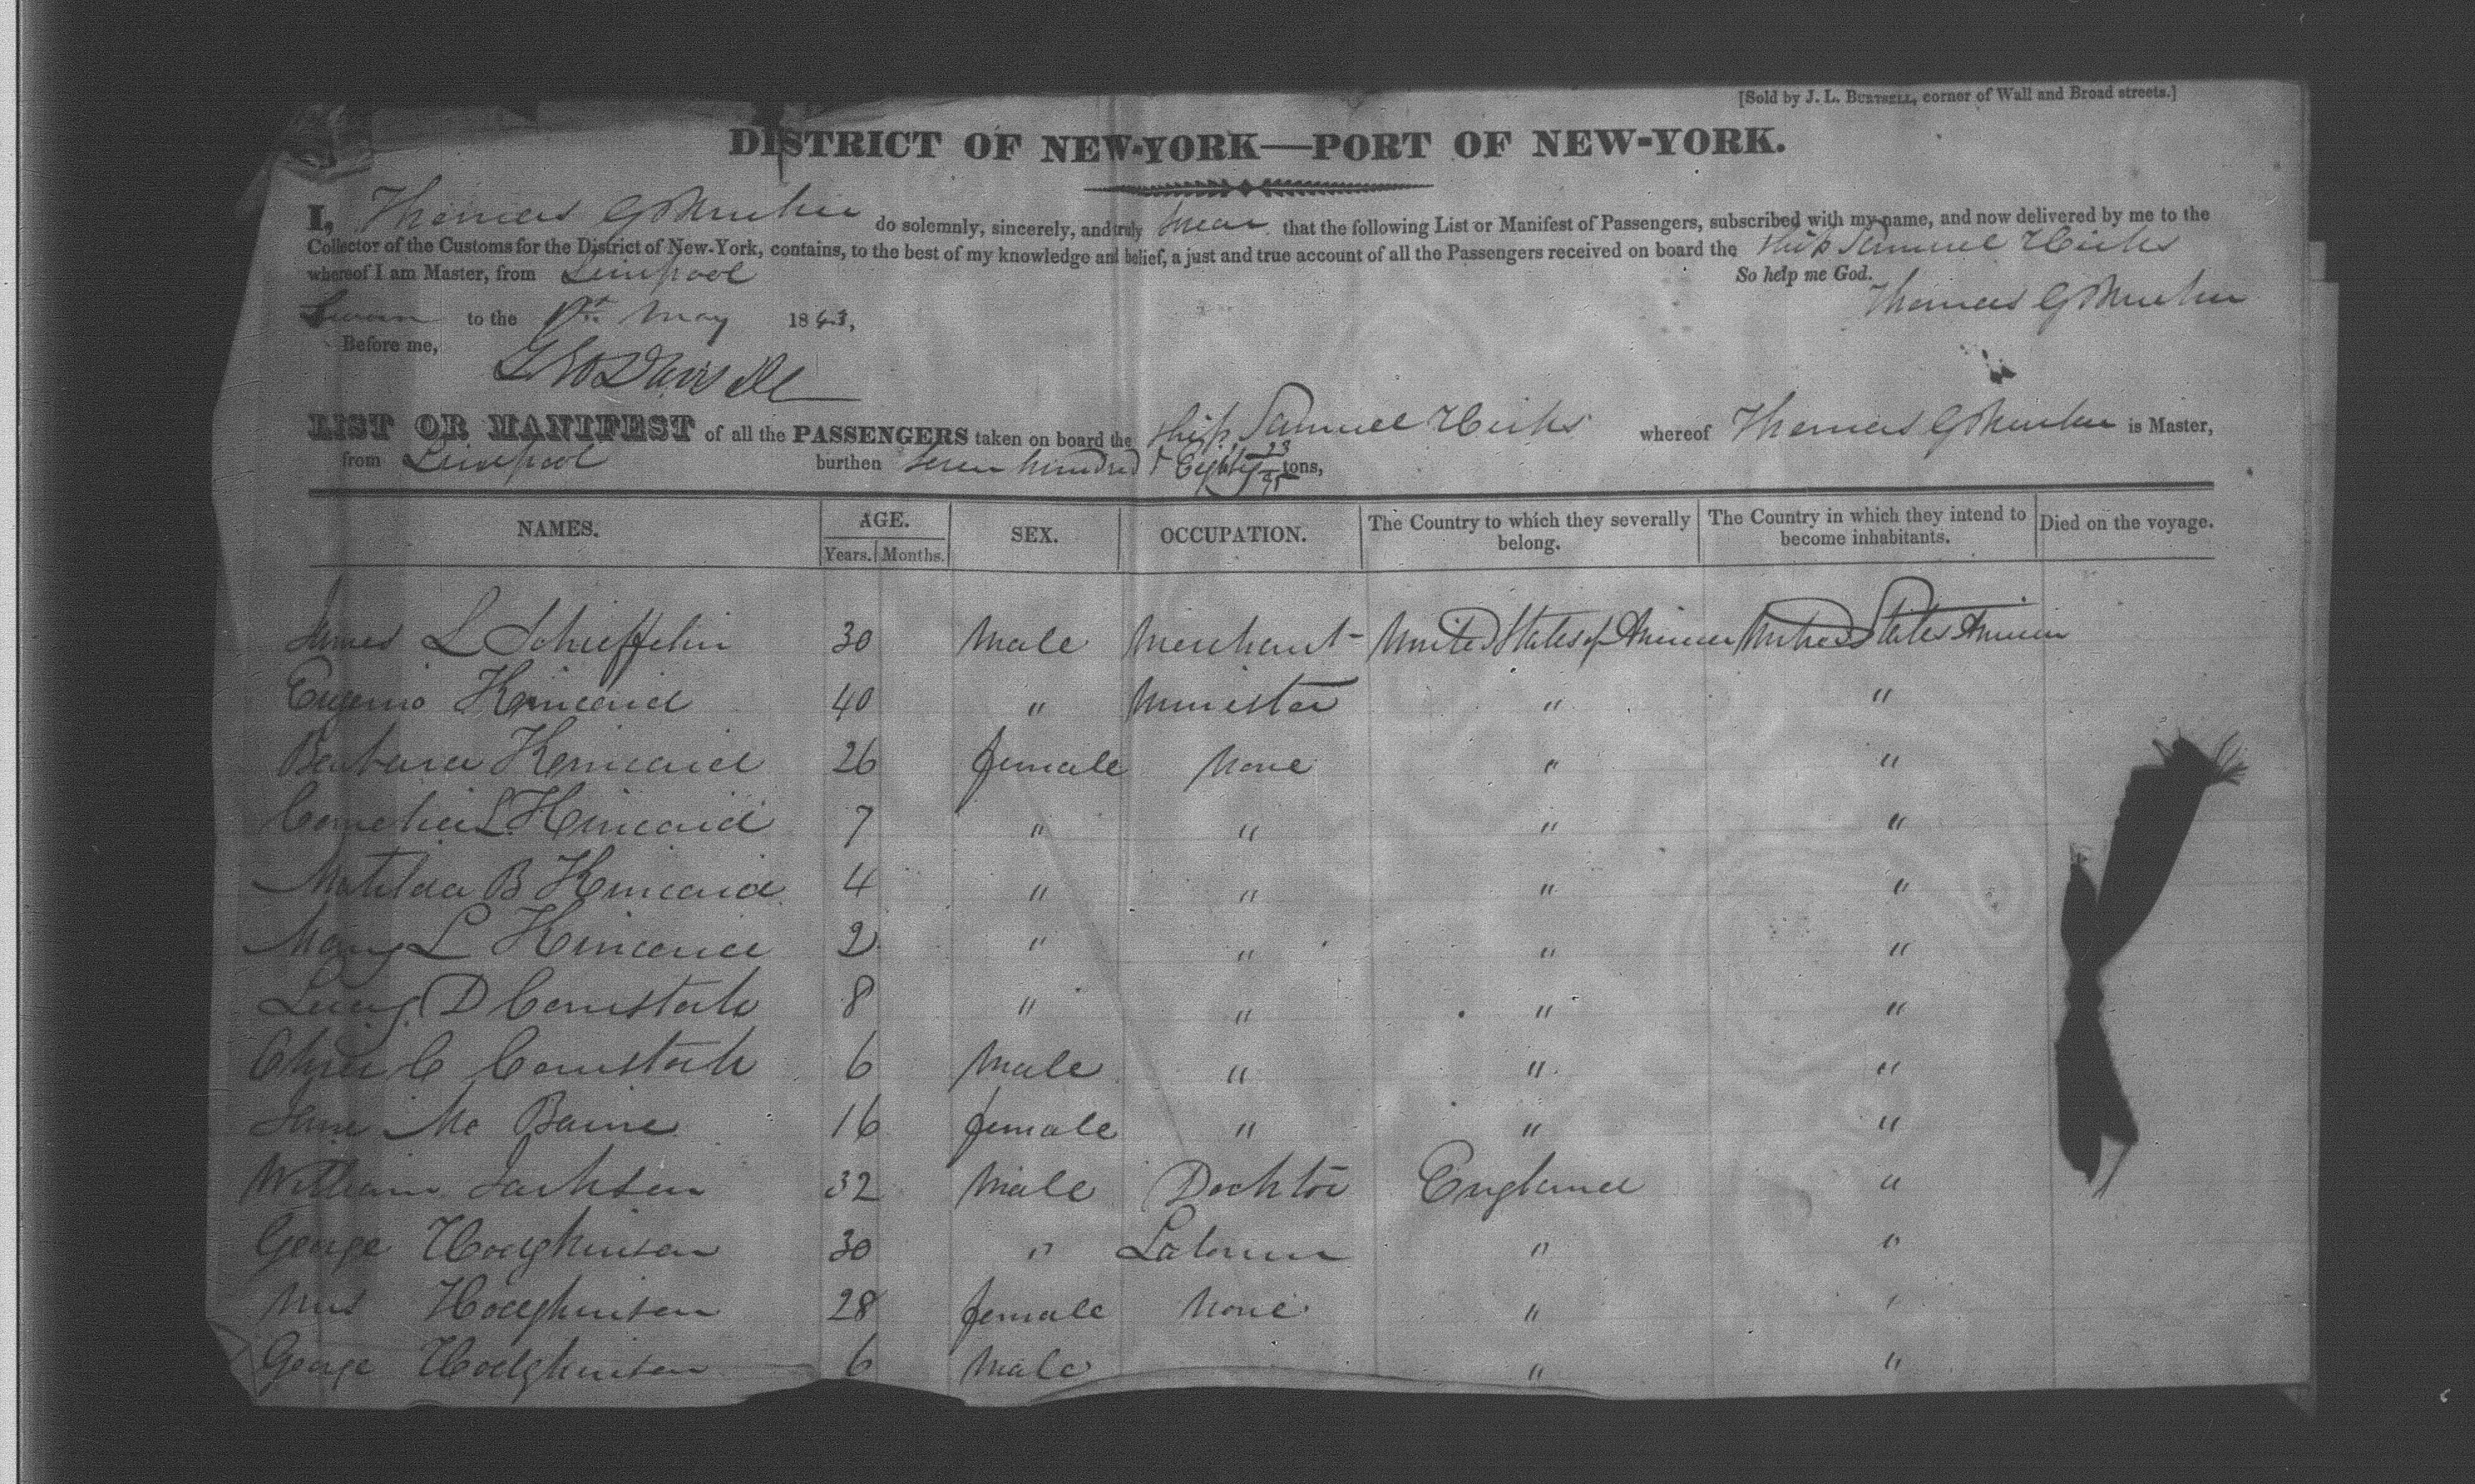 [Sold by J. L. BURTSELL, corner of Wall and Broad streets.]
DISTRICT OF NEW-YORK—PORT OF NEW-YORK.
I, Thomas G do solemnly, sincerely, and truly swear that the following List or Manifest of Passengers, subscribed with my name, and now delivered by me to the
Collector of the Customs for the District of New-York, contains, to the best of my knowledge and belief, a just and true account of all the Passengers received on board the Ship Samuel Hicks
whereof I am Master, from Liverpool So help me God.
Sworn to the 1st May 1843, Thomas G
Before me,
LIST OR MANIFEST of all the PASSENGERS taken on board the Ship Samuel Hicks whereof Thomas G is Master,
from Liverpool burthen Seven hundred & Eighty 23/95 tons,
NAMES. AGE. SEX. OCCUPATION. The Country to which they severally belong. The Country in which they intend to become inhabitants. Died on the voyage.
Years. Months.
James L Schieffelin 30 Male Merchant United States of America United States America
Eugenio Kincaid 40 " Minister " "
Barbara Kincaid 26 female None " "
Cornelia L Kincaid 7 " " " "
Matilda B Kincaid 4 " " " "
Mary L Kincaid 2 " " " "
Lucy D Comstock 8 " " " "
C Comstock 6 Male " " "
Jane Mc Baine 16 female " " "
William Jackson 32 Male Docktor England "
George Hodghinson 30 " Labourer " "
Mrs Hodghinson 28 female None " "
George Hodghinson 6 Male " "